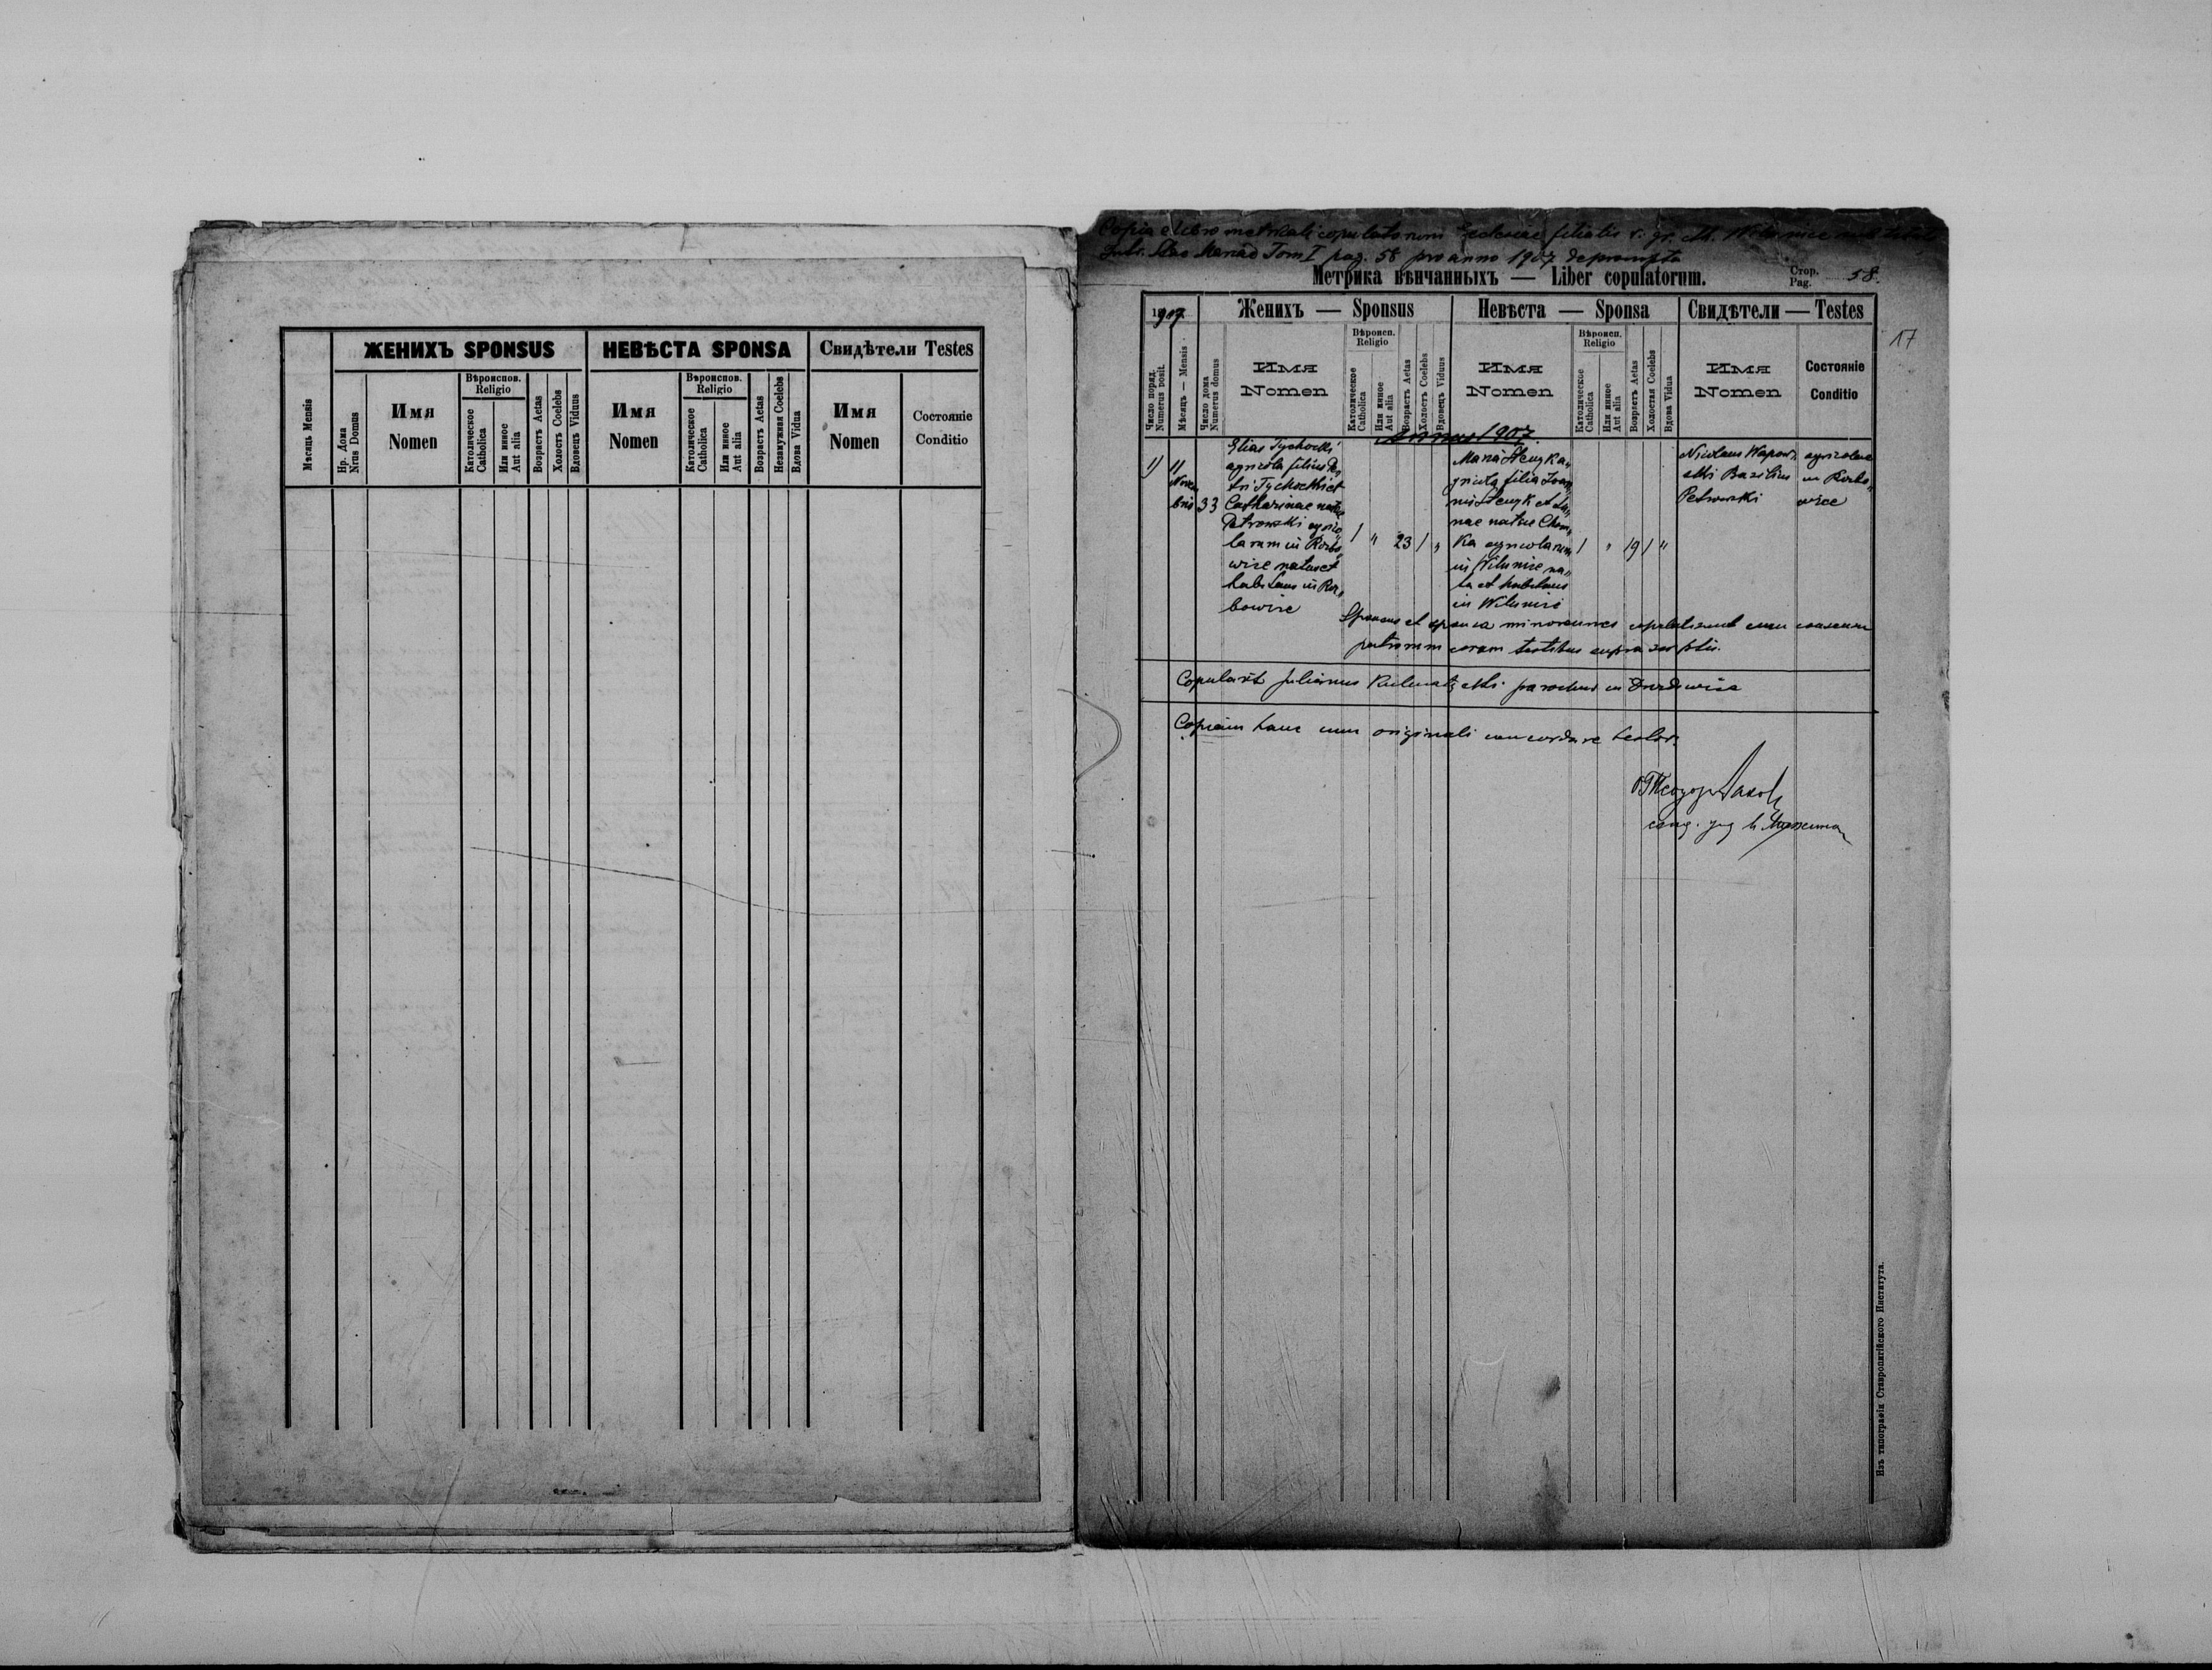 ЖЕНИХЪ SPONSUS
НЕВѢСТА SPONSA
Свидѣтели Testes
Мѣсяць Mensis
Нр. Дома
Nrus Domus
Имя
Nomen
Вѣроиспов.
Religio
Католическое
Catholica
Или иное
Aut alia
Возрастъ Aetas
Холостъ Coelebs
Вдовецъ Viduus
Имя
Nomen
Вѣроиспов.
Religio
Католическое
Catholica
Или иное
Aut alia
Возрастъ Aetas
Незамужная Coelebs
Вдова Vidua
Имя
Nomen
Состояніе
Conditio
Copia e libro metricali copulatorum Ecclesiae filialis r. gr. M.
Tom I pag. 58 pro anno 1907 deprompta
Метрика вѣнчанныхъ — Liber copulatorum.
Стор.
Pag. 58.
17
1907
Женихъ — Sponsus
Невѣста — Sponsa
Свидѣтели — Testes
Число поряд.
Numerus posit.
Мѣсяцъ — Mensis
Число дома
Numerus domus
Имя
Nomen
Вѣроисп.
Religio
Католическое
Catholica
Или иное
Aut alia
Возрастъ Aetas
Холостъ Coelebs
Вдовецъ Viduus
Имя
Nomen
Вѣроисп.
Religio
Католическое
Catholica
Или иное
Aut alia
Возрастъ Aetas
Холостая Coelebs
Вдова Vidua
Имя
Nomen
Состояніе
Conditio
Annus 1907.
1)
11
Novem
bris
33
Elias Tychocki
agricola filius Pe„
tri Tychocki et
Catharinae natae
Petrowski agrico„
larum in Rorbo„
wice natus et
habitans in Ror„
bowice
1 „ 23 1 „
Maria
filia Joan„
nis et An„
nae natae Chom„
ka agricolarum
in na„
ta et habitans
in
1 „ 19 1 „
Nicolaus
Basilius
Petrowski
agricolae
in Rorbo„
wice
Sponsus et sponsa minorennes copulati sunt cum consensu
patrum coram testibus supra scriptis.
Copulavit Julianus parochus in
Copiam hanc cum originali concordare testor.
Теодор